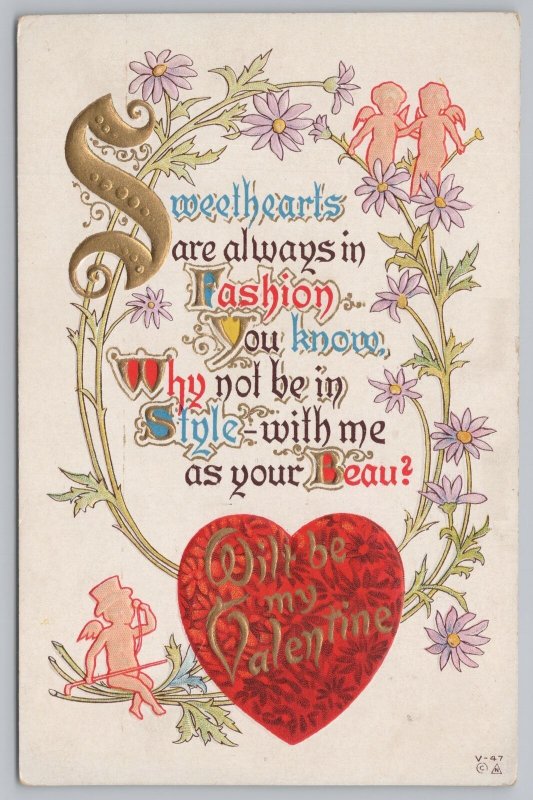 Sweethearts
are always in
Fashion
You know,
Why not be in
Style - with me
as your Beau?
Wilt be
my
Valentine
V-47
© N